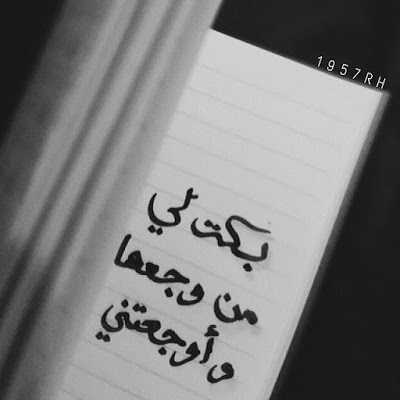 1957RH
بكت لي
من وجعها
وأوجعتني